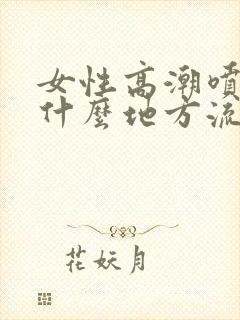 女性高潮噴
什麼地方流
花妖月